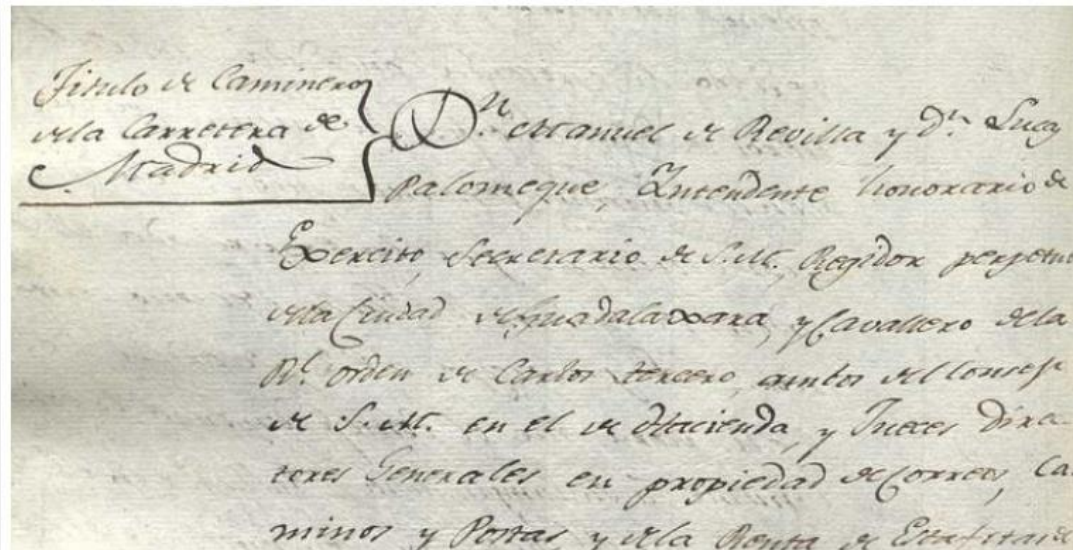 Titulo de Caminero
dela Carretera de
Madrid
Dn. Manuel de Revilla y Dn. Lucas
Palomeque, Intendente honorario de
Exercito, Secretario de S.M., Regidor perpetuo
dela Ciudad de Guadalaxara, y Cavallero dela
Rl. orden de Carlos tercero, ambos del Consejo
de S.M. en el de Hacienda, y Jueces Direc
tores Generales en propiedad de Correos, Ca
minos y Postas, y dela Renta de Estafetas de